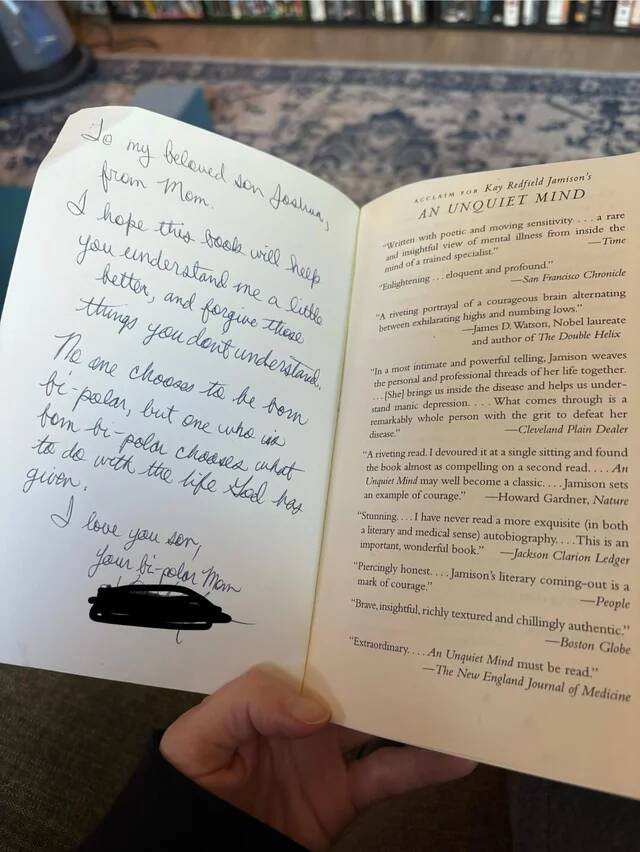 To my beloved son Joshua,
from Mom.
I hope this book will help
you understand me a little
better, and forgive those
things you dont understand.
No one chooses to be born
bi-polar, but one who is
born bi-polar chooses what
to do with the life God has
given.
I love you son,
Your bi-polar Mom
ACCLAIM FOR Kay Redfield Jamison's
AN UNQUIET MIND
"Written with poetic and moving sensitivity . . . a rare
and insightful view of mental illness from inside the
mind of a trained specialist." —Time
"Enlightening . . . eloquent and profound."
—San Francisco Chronicle
"A riveting portrayal of a courageous brain alternating
between exhilarating highs and numbing lows."
—James D. Watson, Nobel laureate
and author of The Double Helix
"In a most intimate and powerful telling, Jamison weaves
the personal and professional threads of her life together.
. . . [She] brings us inside the disease and helps us under-
stand manic depression. . . . What comes through is a
remarkably whole person with the grit to defeat her
disease." —Cleveland Plain Dealer
"A riveting read. I devoured it at a single sitting and found
the book almost as compelling on a second read. . . . An
Unquiet Mind may well become a classic. . . . Jamison sets
an example of courage." —Howard Gardner, Nature
"Stunning. . . . I have never read a more exquisite (in both
a literary and medical sense) autobiography. . . . This is an
important, wonderful book." —Jackson Clarion Ledger
"Piercingly honest. . . . Jamison's literary coming-out is a
mark of courage." —People
"Brave, insightful, richly textured and chillingly authentic."
—Boston Globe
"Extraordinary. . . . An Unquiet Mind must be read."
—The New England Journal of Medicine